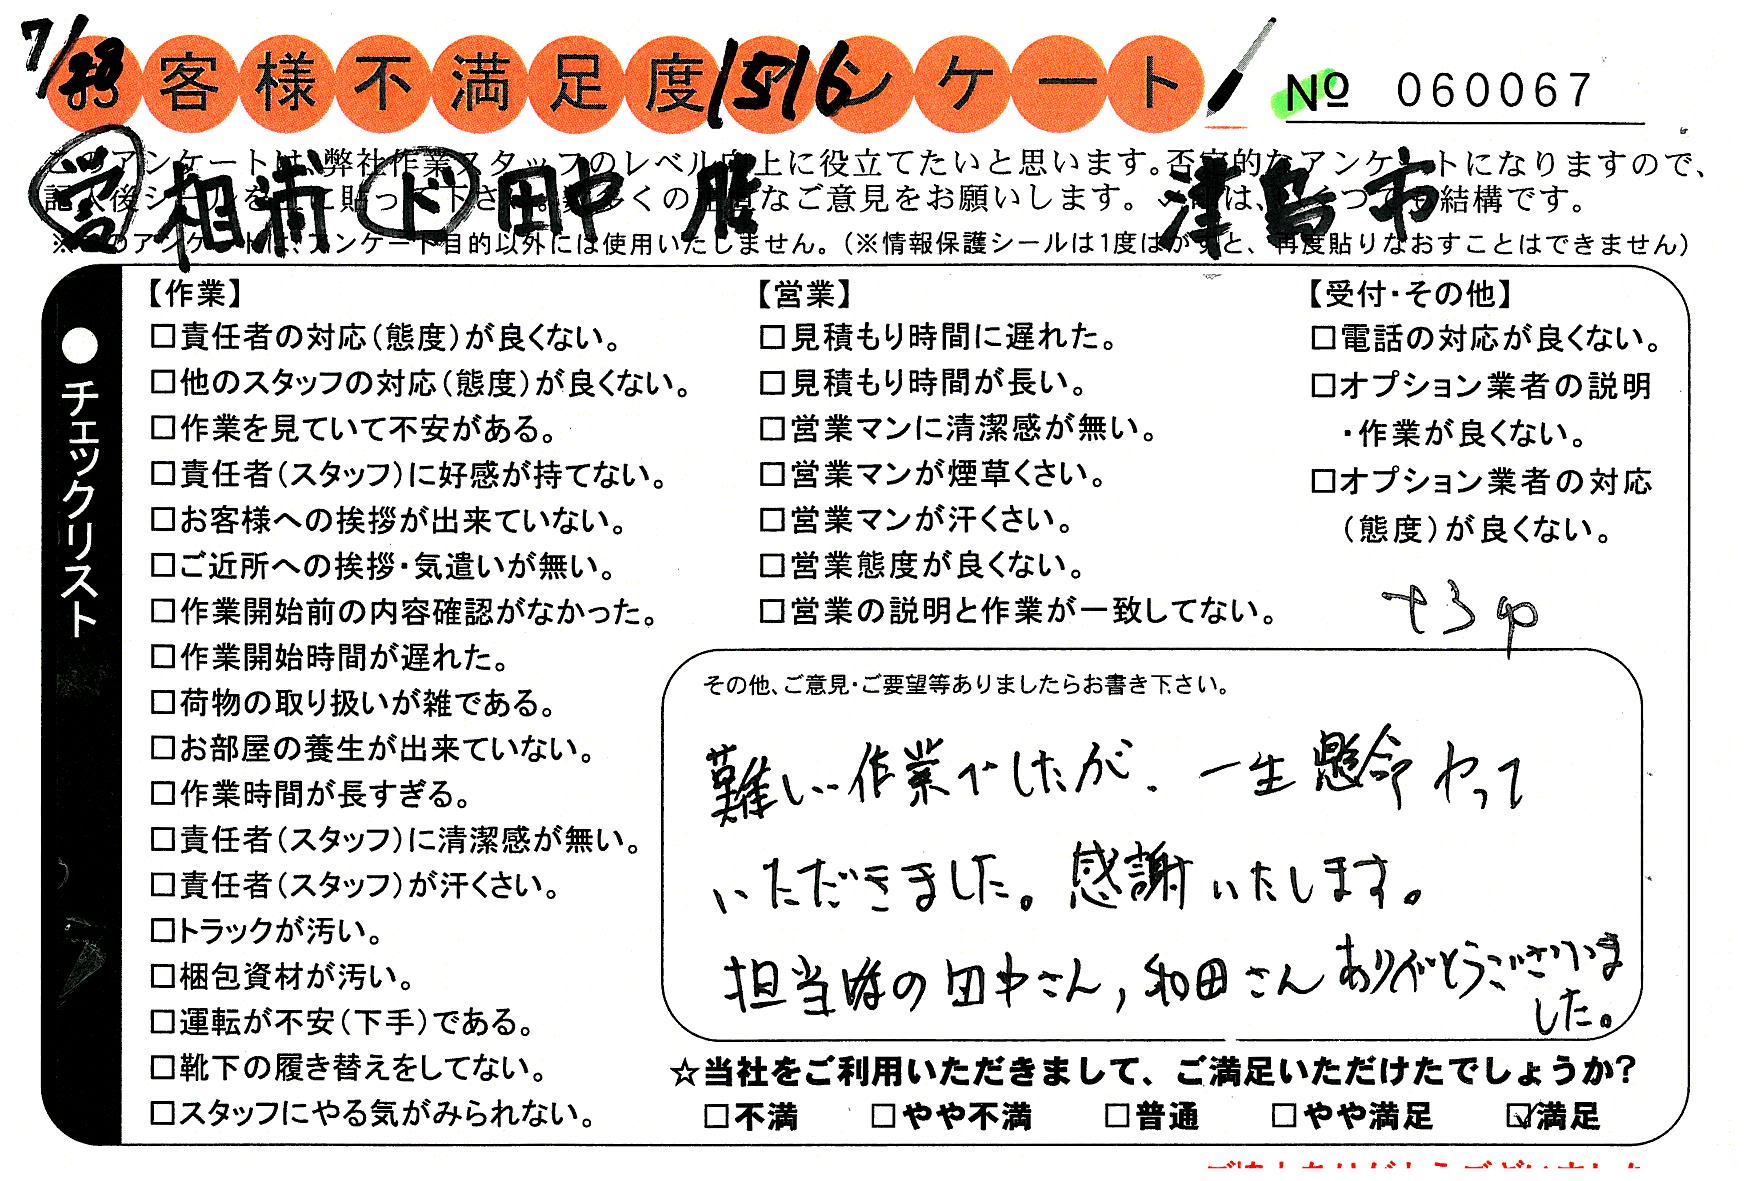 お客様不満足度アンケート
№ 060067
7/
1516
このアンケートは、弊社作業スタッフのレベル向上に役立てたいと思います。否定的なアンケートになりますので、
記入後シールを上に貼って下さい。数多くの正直なご意見をお願いします。 は、いくつでも結構です。
※このアンケートは、アンケート目的以外には使用いたしません。（※情報保護シールは1度はがすと、再度貼りなおすことはできません）
営 相浦 ド 田中 津島市
●チェックリスト
【作業】
□責任者の対応（態度）が良くない。
□他のスタッフの対応（態度）が良くない。
□作業を見ていて不安がある。
□責任者（スタッフ）に好感が持てない。
□お客様への挨拶が出来ていない。
□ご近所への挨拶・気遣いが無い。
□作業開始前の内容確認がなかった。
□作業開始時間が遅れた。
□荷物の取り扱いが雑である。
□お部屋の養生が出来ていない。
□作業時間が長すぎる。
□責任者（スタッフ）に清潔感が無い。
□責任者（スタッフ）が汗くさい。
□トラックが汚い。
□梱包資材が汚い。
□運転が不安（下手）である。
□靴下の履き替えをしてない。
□スタッフにやる気がみられない。
【営業】
□見積もり時間に遅れた。
□見積もり時間が長い。
□営業マンに清潔感が無い。
□営業マンが煙草くさい。
□営業マンが汗くさい。
□営業態度が良くない。
□営業の説明と作業が一致してない。
【受付・その他】
□電話の対応が良くない。
□オプション業者の説明
・作業が良くない。
□オプション業者の対応
（態度）が良くない。
その他、ご意見・ご要望等ありましたらお書き下さい。
難しい作業でしたが、一生懸命やって
いただきました。感謝いたします。
担当の田中さん，和田さんありがとうございま
した。
☆当社をご利用いただきまして、ご満足いただけたでしょうか？
□不満 □やや不満 □普通 □やや満足 ☑満足